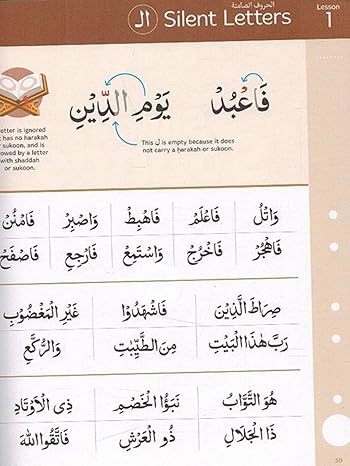 الحروف الصامتة
Lesson
1
Silent Letters
الـ
فَاعْبُدْ يَوْمِ الدِّيْنِ
etter is ignored
t has no harakah
r sukoon, and is
lowed by a letter
with shaddah
or sukoon.
This ل is empty because it does
not carry a harakah or sukoon.
وَاتْلُ فَاعْلَمْ فَاهْبِطْ وَاصْبِرْ فَامْنُنْ
فَاهْجُرْ فَاخْرُجْ وَاسْتَمِعْ فَارْجِعِ فَاصْفَحْ
صِرَاطَ الَّذِيْنَ فَاشْهَدُوْا غَيْرِ الْمَغْضُوْبِ
رَبَّ هٰذَا الْبَيْتِ مِنَ الطَّيِّبٰتِ وَالرُّكَّعِ
هُوَ التَّوَّابُ نَبَؤُا الْخَصْمِ ذِى الْاَوْتَادِ
ذَا الْجَلَالِ ذُو الْعَرْشِ فَاتَّقُوا اللهَ
30